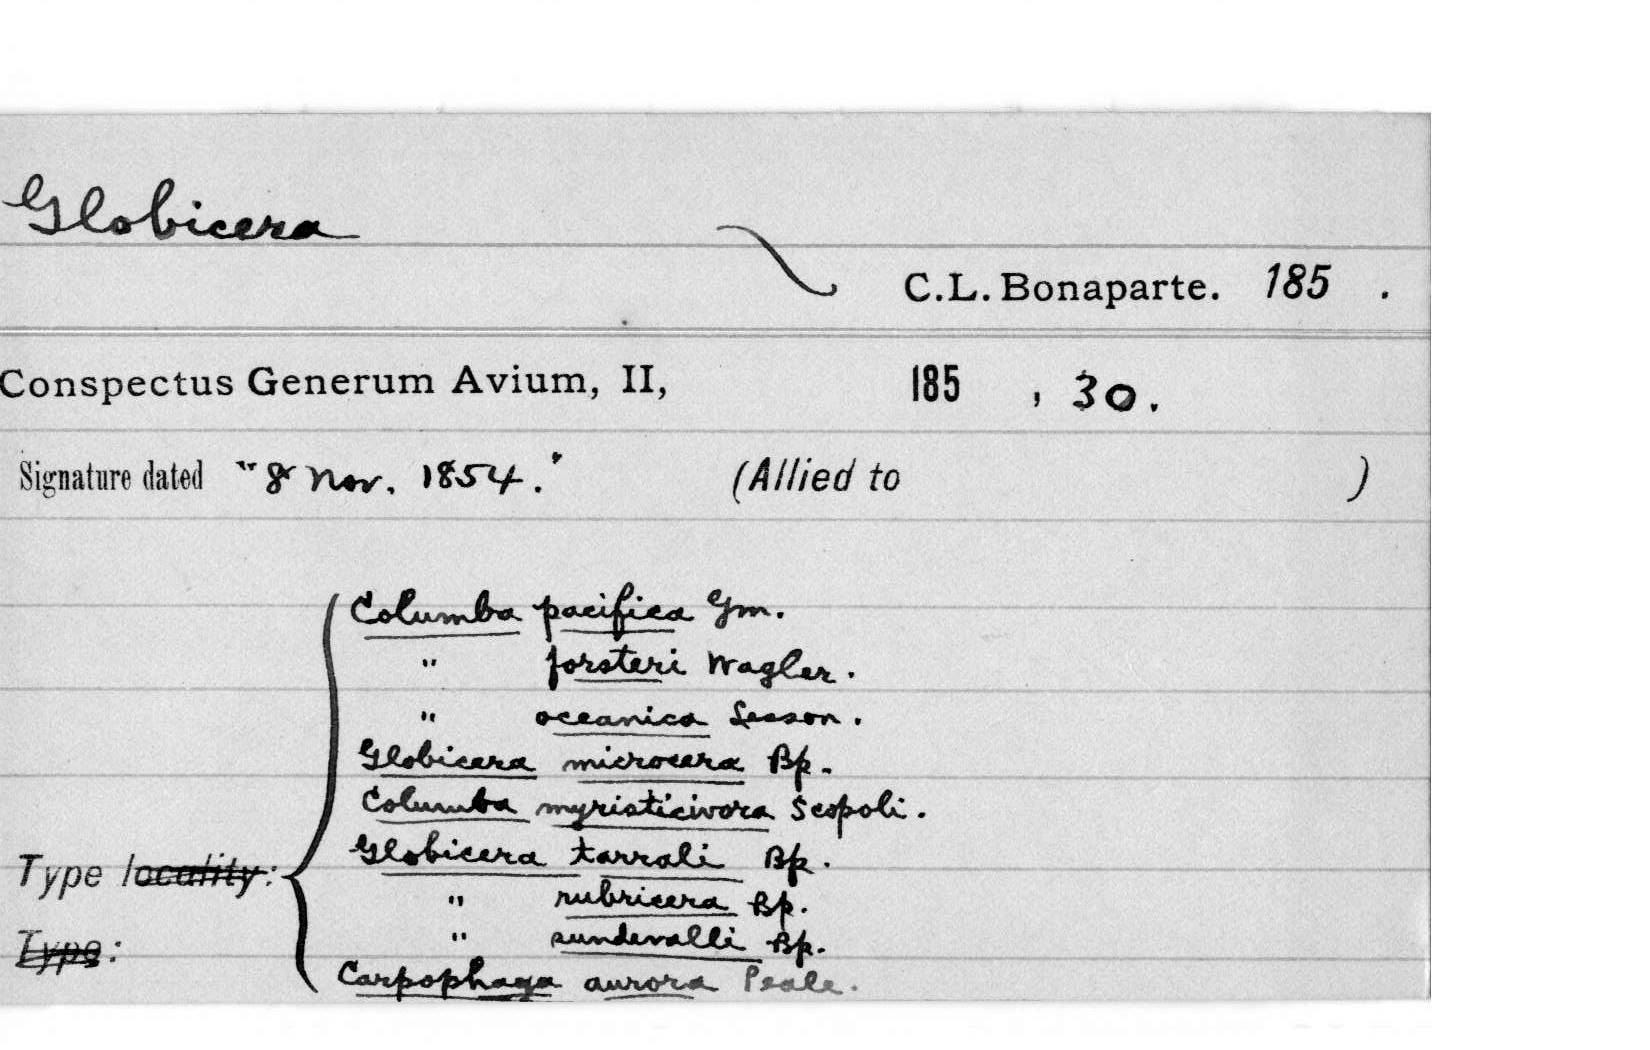 Globicera
C.L. Bonaparte. 185 .
Conspectus Generum Avium, II, 185 , 30.
Signature dated "8 Nov. 1854." (Allied to )
Columba pacifica Gm.
" forsteri Wagler.
" oceanica Lesson.
Globicera microcera Bp.
Columba myristicivora Scopoli.
Type locality: Globicera tarrali Bp.
" rubricera Bp.
Type: " sundevalli Bp.
Carpophaga aurora Peale.